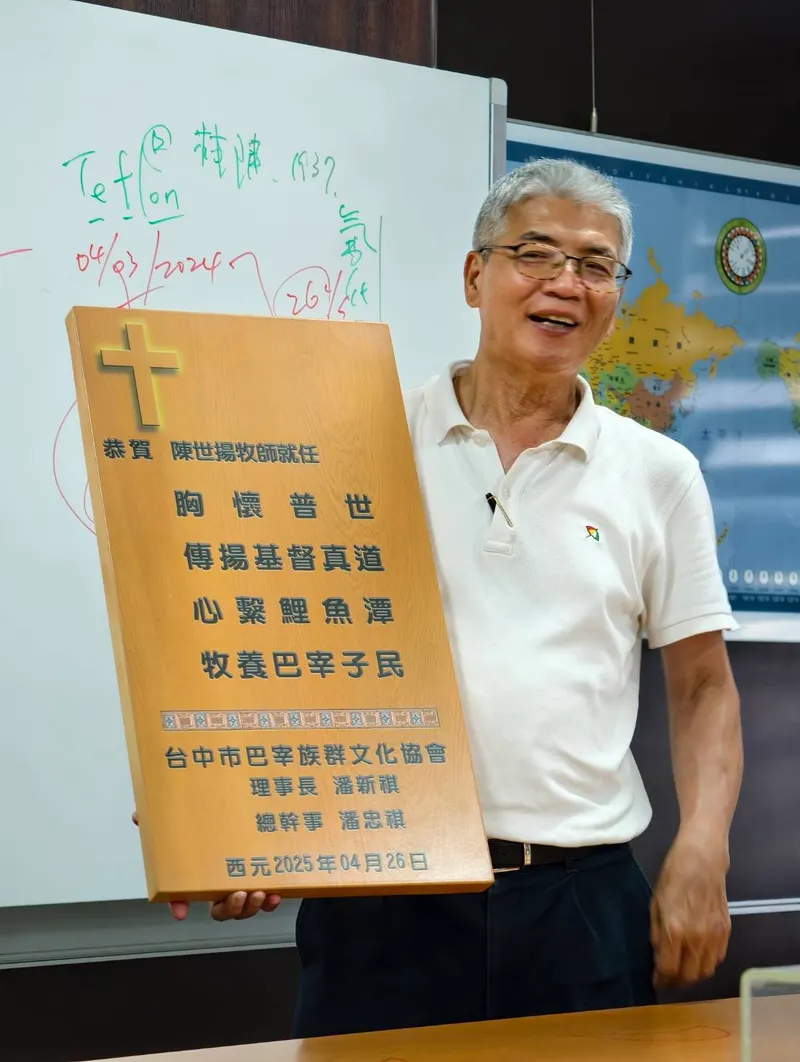 Teflon
1937.
04/03/2024
恭賀 陳世揚牧師就任
胸懷普世
傳揚基督真道
心繫鯉魚潭
牧養巴宰子民
台中市巴宰族群文化協會
理事長 潘新祺
總幹事 潘忠祺
西元2025年04月26日